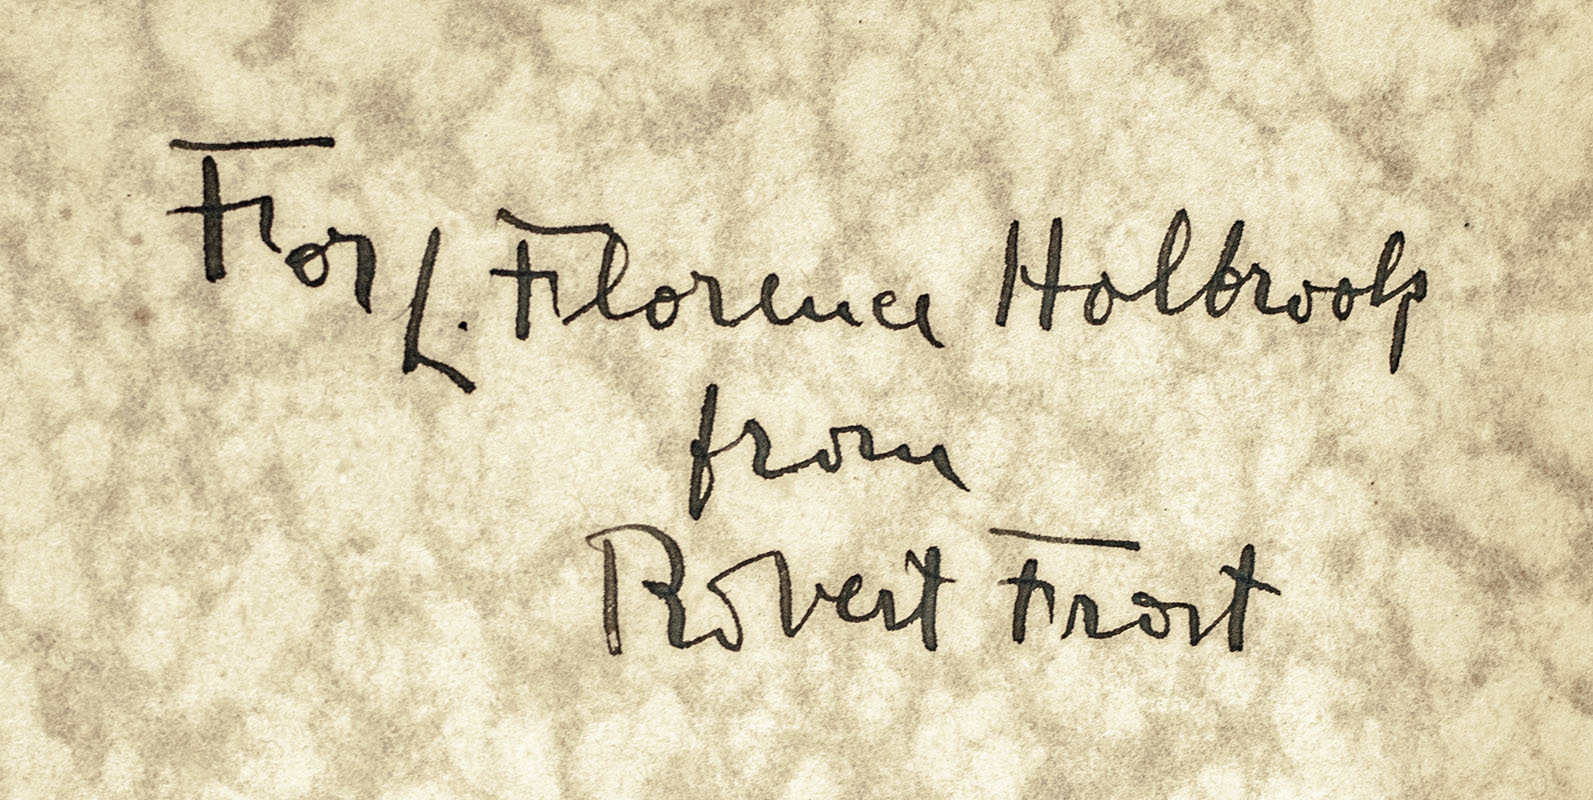 For L. Florence Holbrook
from
Robert Frost